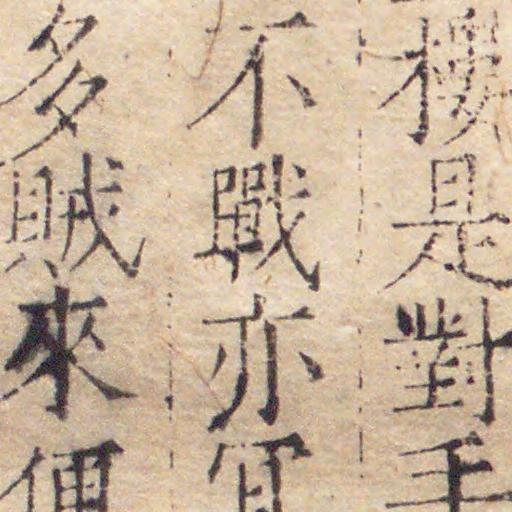 是對手
不戰亦
多賊來便